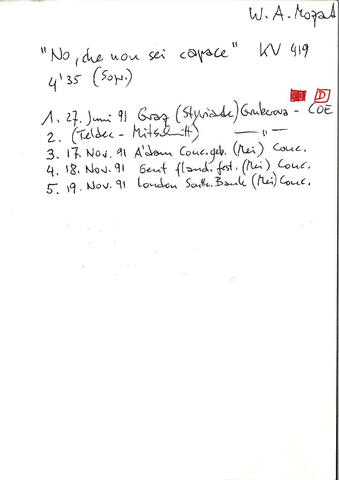 W. A. Mozart
"No, che non sei capace" KV 419
4'35 (Sopr.)
D
1. 27. Juni 91 Graz (Styriarte) Gruberova - COE
2. (Teldec - Mitschnitt) —"—
3. 17. Nov. 91 A'dam Conc.geb. (Mei) Conc.
4. 18. Nov. 91 Gent fland. fest. (Mei) Conc.
5. 19. Nov. 91 London South. Bank (Mei) Conc.